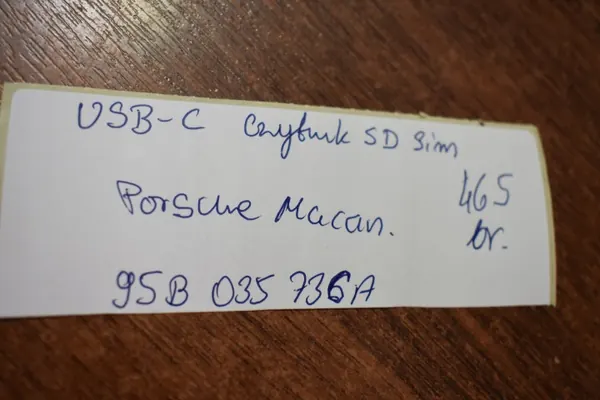 USB-C Czytnik SD Sim
465
Porsche Macan.
br.
95B 035 736A